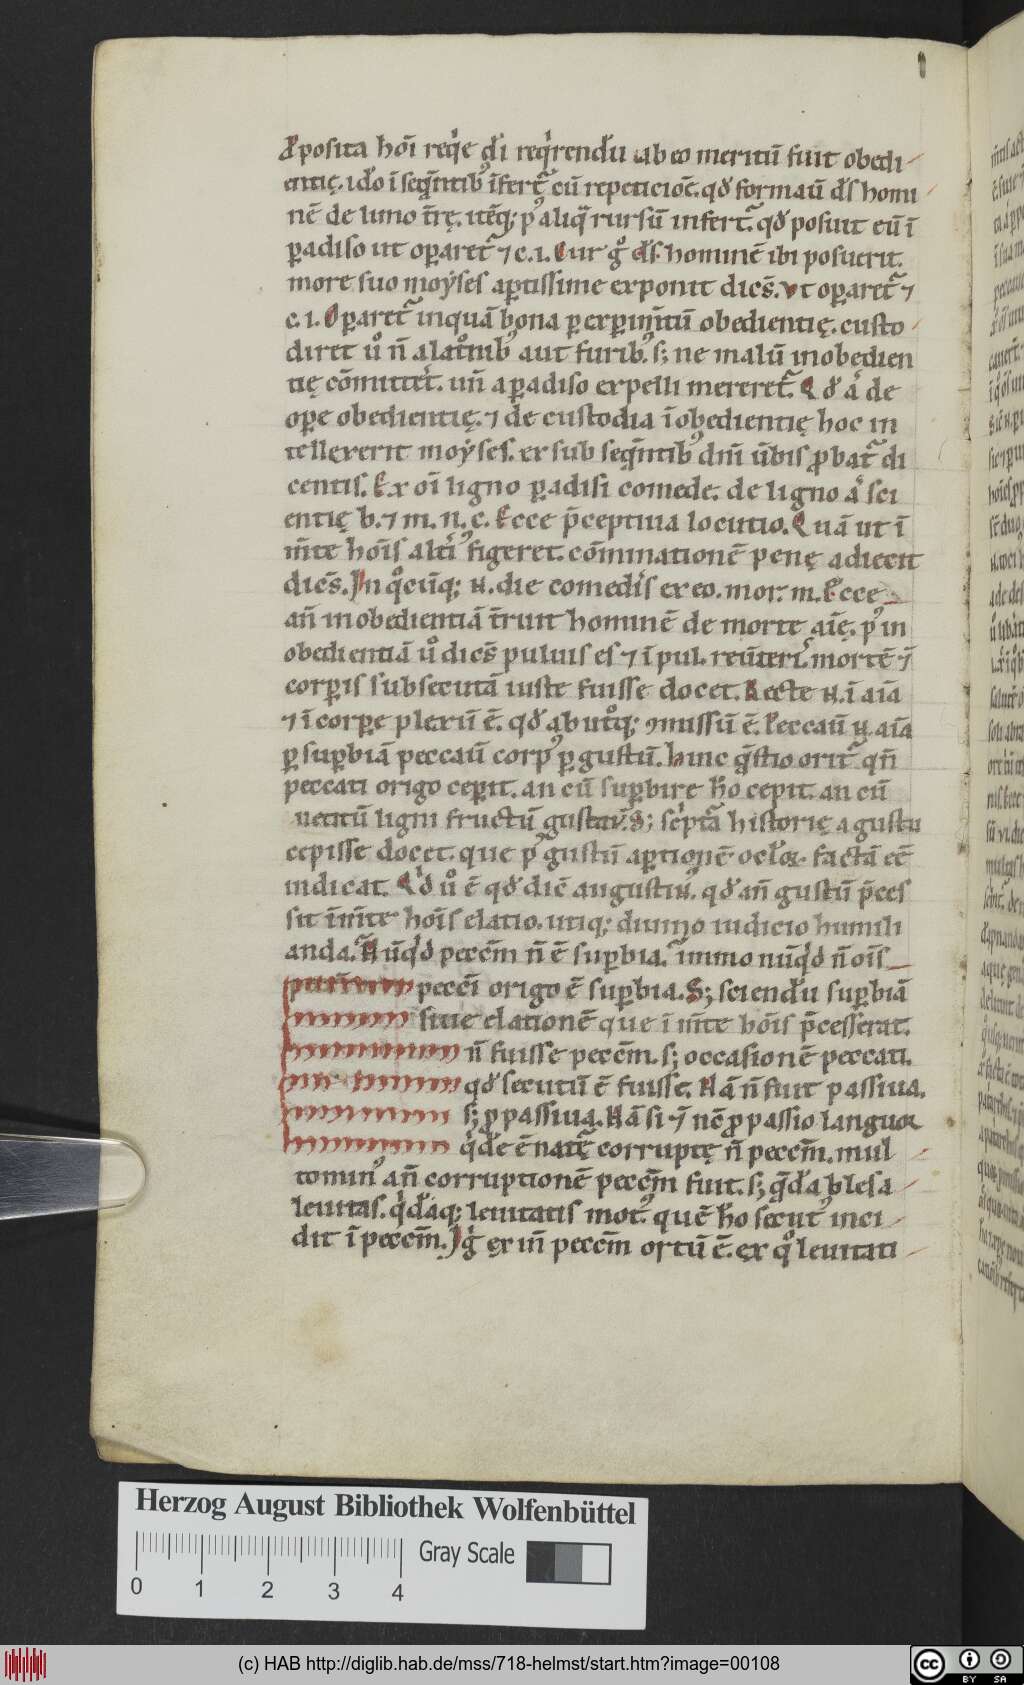 Exposita hōi reqͥe dī reqͥrendū ab eo meritū fuit obedi
entię. iđo ī seq̄ntib᷒ īfert᷑ cū repeticiōe. qđ formaū d̄s homi
nē de limo t̄rę. itēq; p᷒ aliq̄ rursū infert᷑. qđ posuit eū ī
ꝑadiso ut oꝑaret᷑ ⁊ c. i. Cur gͦ d̄s hominē ibi posuerit.
more suo moẏses aꝑtissime exponit dicēs. Vt oꝑaret᷑ ⁊
c. i. Oꝑaret᷑ inquā bona ꝑ exꝑim̄tū obedientię. custo
diret uͦ n̄ a latͦnib᷒ aut furib᷒. s; ne malū inobedien
tię cōmitteͥt. un̄ a ꝑadiso expelli mereret᷑. Qđ aͥ de
oꝑe obedientię. ⁊ de custodia īobedientię hoc in
tellexerit moẏses. ex sub seq̄ntib᷒ dn̄i ūbis ꝓbat᷑ di
centis. Ex oī ligno ꝑadisi comede. de ligno aͥ sci
entię b. ⁊ m. n. c. Ecce p̄ceptiua locutio. Quā ut ī
m̄te hōis altiͥ᷒ figeret. cōminationē penę adiecit
dicēs. In qͦcūq; N. die comedīs ex eo. mor. m. Ecce
an̄ inobedientiā t̄ruit hominē de morte aīę. p᷒ in
obedientiā uͦ dicēs puluis es ⁊ ī pul. reūteriͥ. mortē ⁊̄
corꝑis subsecutā iuste fuisse docet. Recte N. ī aīa
⁊ ī corꝑe plexū ē. qđ ab utͦq; ꝯmissū ē. Peccaū N. aīa
ꝑ suꝑbiā peccaū corp᷒ ꝑ gustū. hinc q̄stio orit᷑ qn̄
peccati origo ceꝑit. an cū suꝑbire ħo cepit. an cū
uetitū ligni fructū gustaū. S; scͥpta historię a gustu
cepisse docet. que p᷒ gustū aꝑtionē ocloꝝ factā eē
indicat. Qͥd uͦ ē qđ dic̄ augustin᷒. qđ an̄ gustū p̄ces
sit in m̄te hōis elatio. utiq; diuino iudicio humili
anda. Nūqͥd pecc̄m n̄ ē suꝑbia. immo nūqͥd n̄ ois
pecc̄i origo ē suꝑbia. S; sciendū suꝑbiā
siue elationē que ī m̄te hōis p̄cesserat.
n̄ fuisse pecc̄m. s; occasionē peccati.
qđ secutū ē fuisse. Nā n̄ fuit passiua.
s; ꝓpassiua. Nā si ⁊̄ nē ꝓpassio languor
qͥdē ē nat᷑ę corruptę n̄ pecc̄m. mul
tomin᷒ an̄ corruptionē pecc̄m fuit. s; q̄dā blesa
leuitas. qͥdāq; leuitatis mot᷒. quē ħo secut᷒ inci
dit ī pecc̄m. Igͥ ex in̄ pecc̄m ortū ē. ex qͦ leuitati
Herzog August Bibliothek Wolfenbüttel
Gray Scale
0 1 2 3 4
(c) HAB http://diglib.hab.de/mss/718-helmst/start.htm?image=00108
cc BY SA